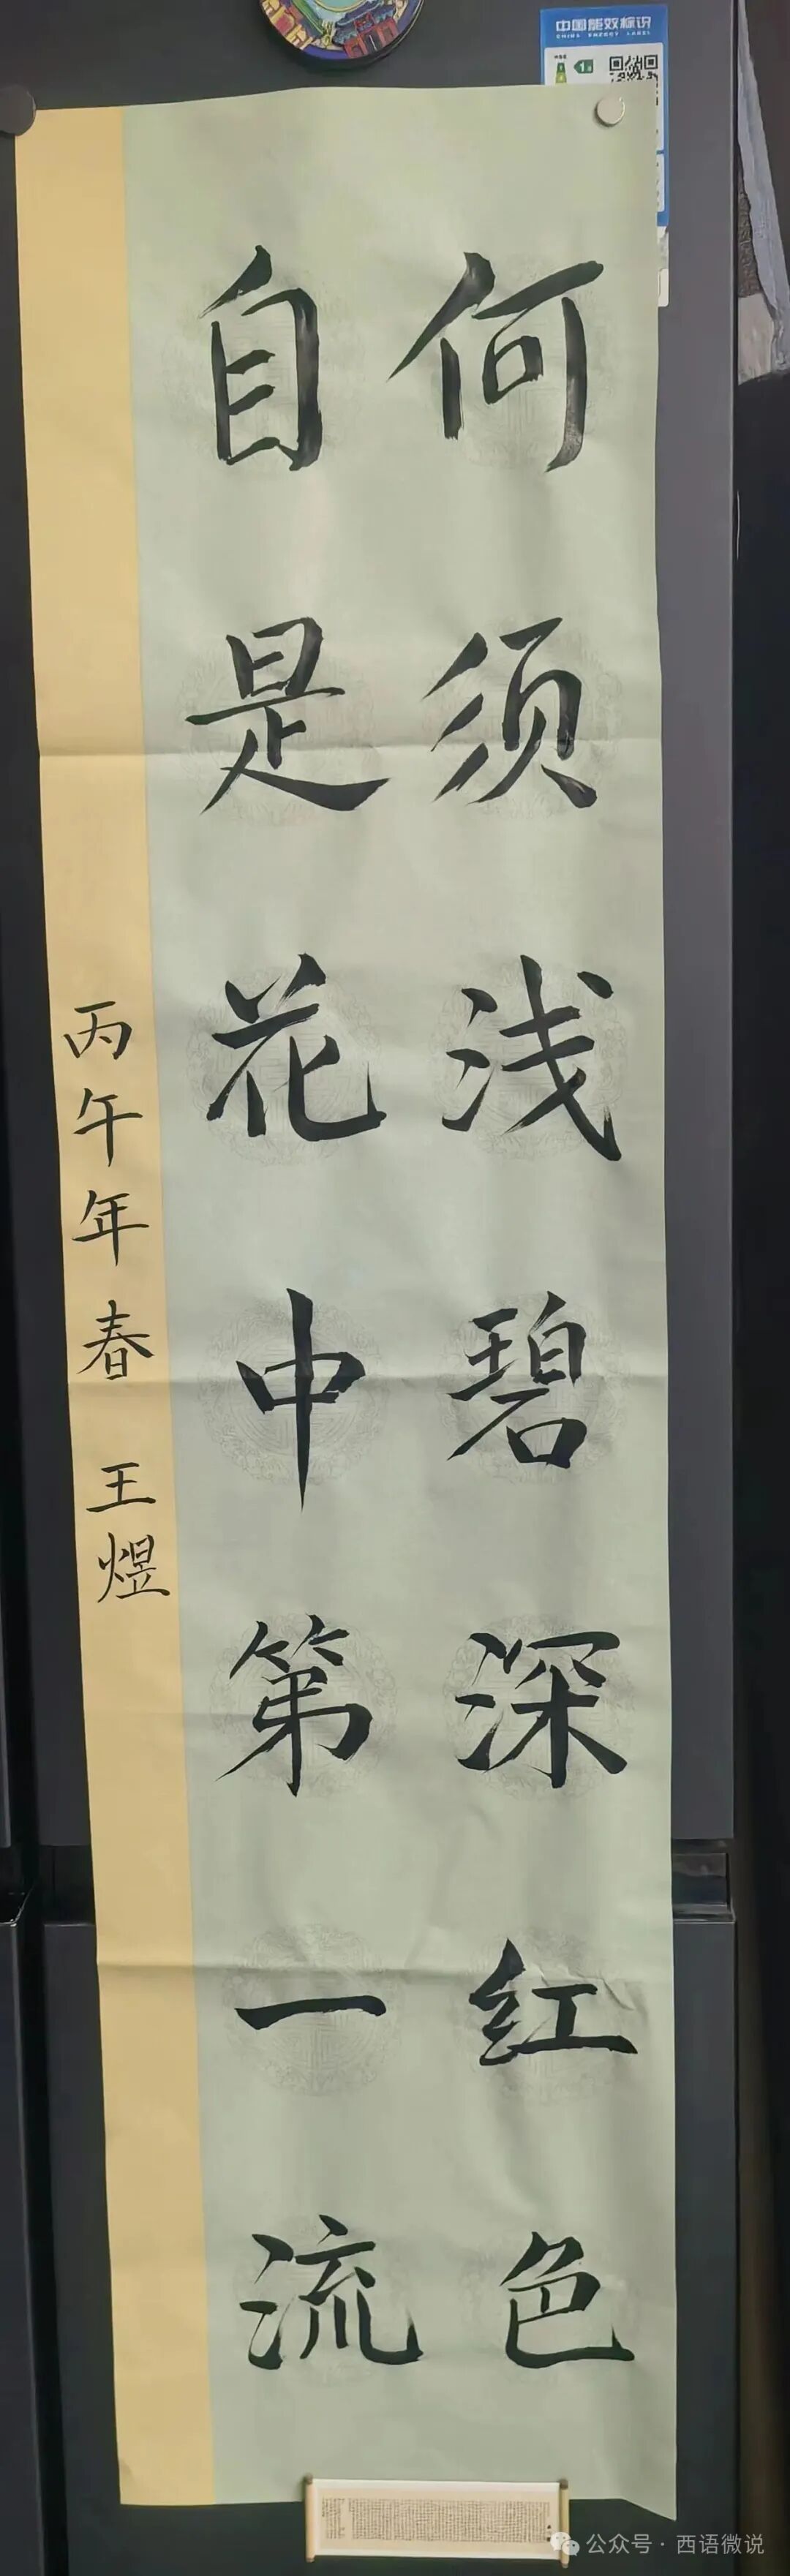 何须浅碧深红色
自是花中第一流
丙午年春 王煜
中国能效标识
CHINA ENERGY LABEL
公众号 · 西语微说